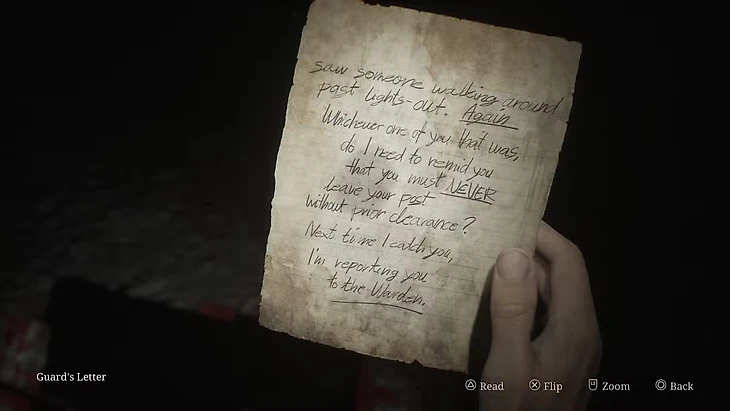 saw someone walking around
past lights-out. Again.
Whichever one of you that was,
do I need to remid you
that you must NEVER
leave your post
without prior clearance?
Next time I catch you,
I'm reporting you
to the Warden.
Guard's Letter
Read
Flip
Zoom
Back